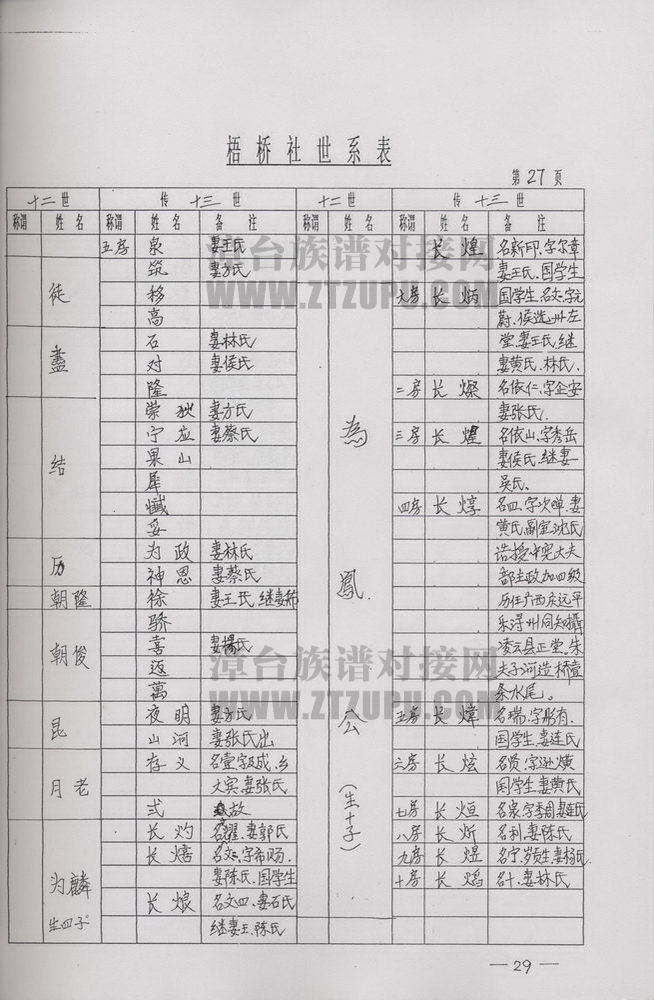 梧桥社世系表
第27页
十二世 传十三世 十二世 传十三世
称谓 姓名 姓名 备注 称谓 姓名 备注
五房 泉 妻王氏 长煌 名新印、字尔章
筑 妻方氏 妻王氏、国学生
徒 移 大房 长炳 国学生、名文、字元
高 蔚、侯选州左
石 妻林氏 堂、妻王氏、继
盏 对 妻侯氏 妻黄氏、林氏、
隆 二房 长燦 名依仁、字企安
荣 妻方氏 妻张氏、
宁应 妻蔡氏 為 三房 长煌 名依山、字秀岳
结 果山 妻侯氏、继妻
犀 吴氏、
四房 长焞 名四、字次 妻
妥 黄氏、副室沈氏
历 为政 妻林氏 诰授中宪大夫
神恩 妻蔡氏 部主政加四级
朝隆 徐 妻王氏 鳳 历任广西庆远平
骄 乐浔州同知摄
朝俊 喜 妻楊氏 凌云县正堂、朱
迈 夫子河造桥壹
萬 条水尾。
昆 夜明 妻方氏 公 五房 长煒 名瑞、字彤有、
山河 妻张氏出 国学生、妻连氏
月老 存义 六房 长炫
大宾、妻张氏 (生十子) 国学生、妻黄氏
式 故 七房 长烜 名泉、字季周、妻连氏
长灼 妻郭氏 八房 长炘 名利、妻陈氏
为麟 长熺 名文、字希 九房 长煜 名宁、岁贡生、妻杨氏
生四子 妻陈氏、国学生 十房 长焰 名十、妻林氏
长烺 名文四、妻石氏
继妻王、陈氏
—29—
漳台族谱对接网
WWW.ZTZUPU.COM
漳台族谱对接网
WWW.ZTZUPU.COM